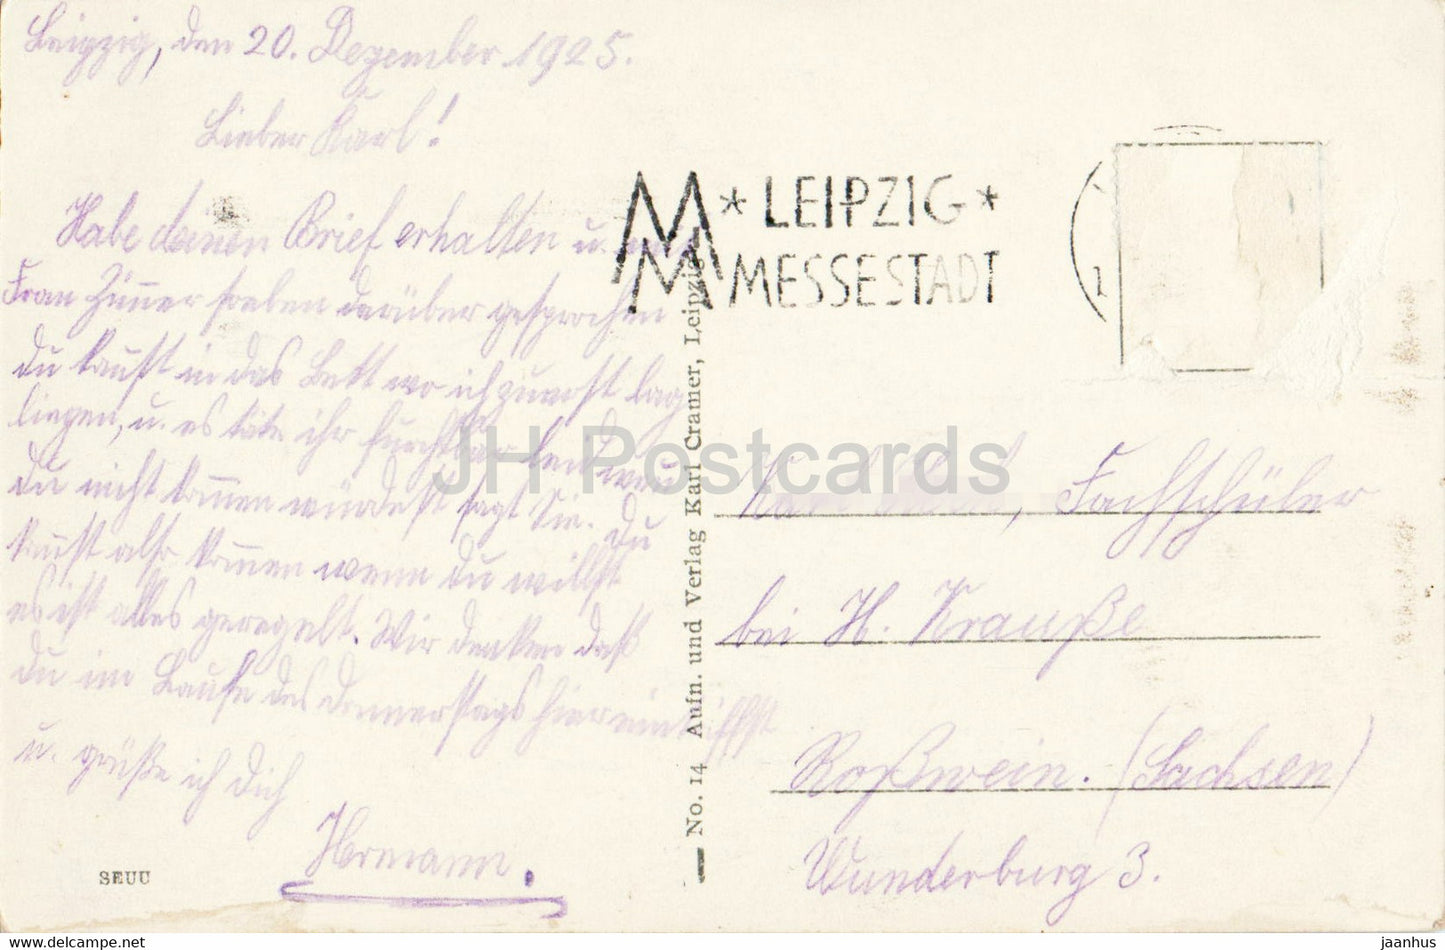 Leipzig, den 20. Dezember 1925.
Lieber Karl!
Habe deinen Brief erhalten u. mit
Frau Zimmer soeben darüber gesprochen
du kannst in das Bett wo ich zuerst lag
liegen, u. es täte ihr furchtbar leid wenn
du nicht kommen würdest sagt Sie. Du
kannst also kommen wenn du willst
es ist alles geregelt. Wir denken daß
du im Laufe des Donnerstags hier eintriffst
u. grüße ich dich
Hermann.
SEUU
No. 14 Aufn. und Verlag Karl Cramer, Leipzig
MM * LEIPZIG *
MESSESTADT
1
Karl, Fachschüler
bei H. Krauße
Roßwein. (Sachsen)
Wunderburg 3.
JH Postcards
www.delcampe.net
jaanhus